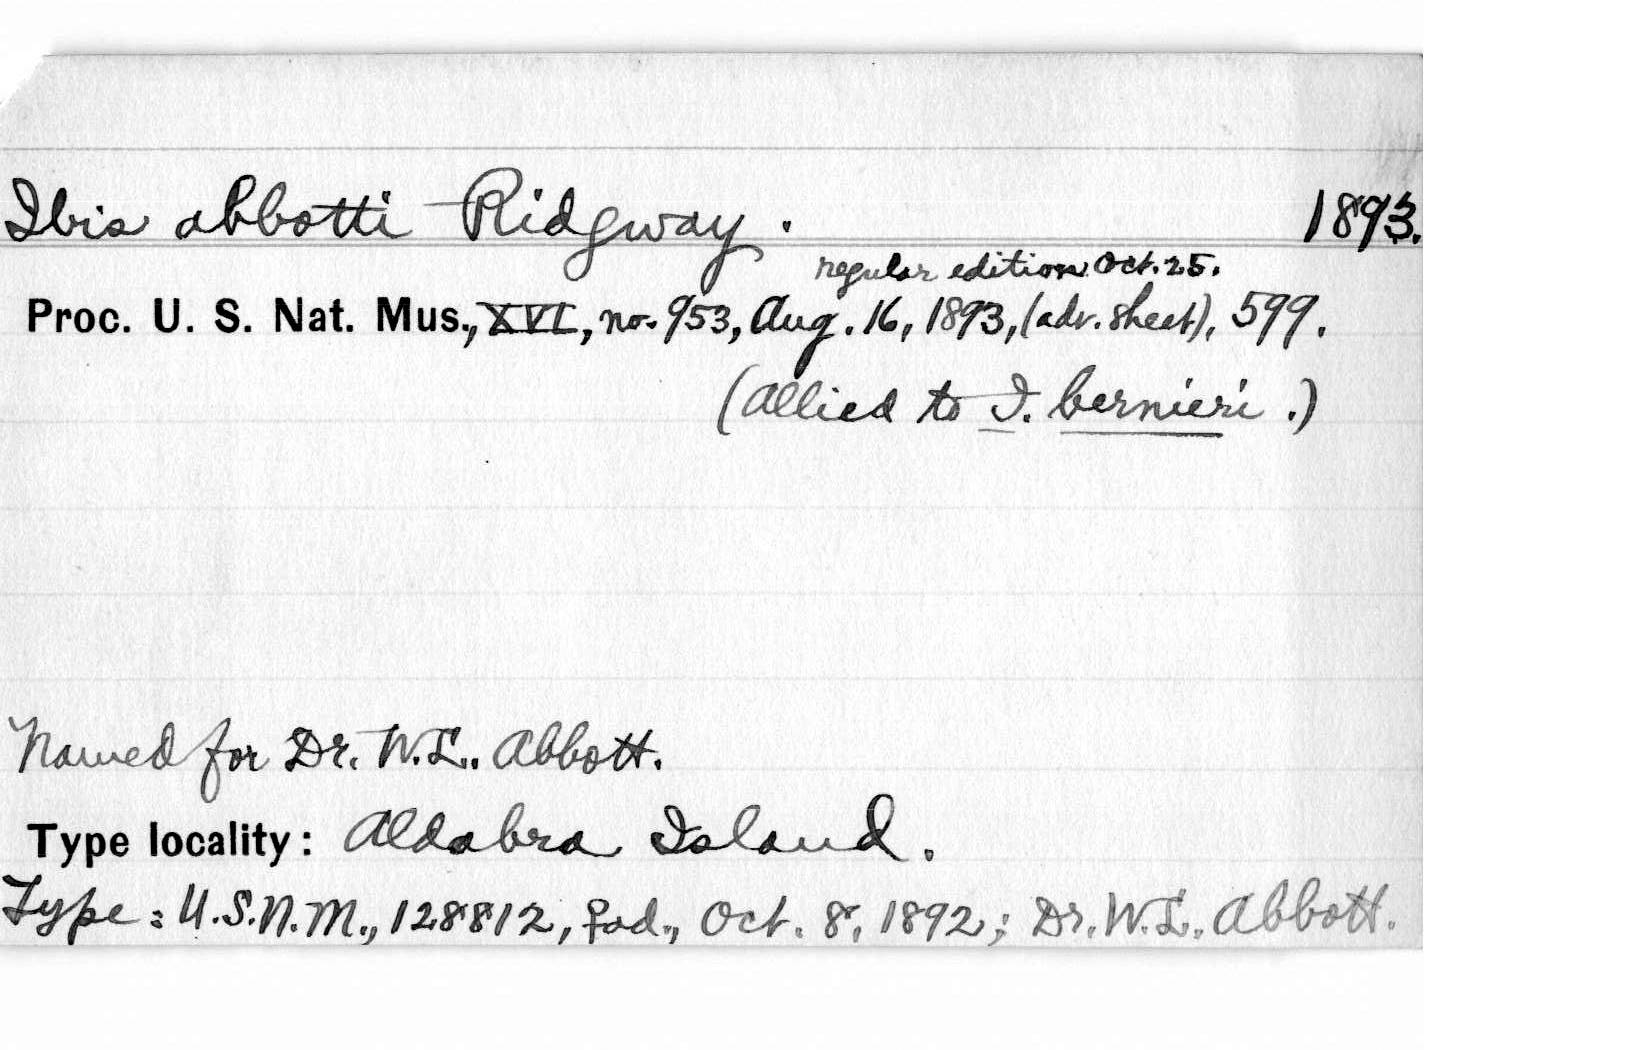 Ibis abbotti Ridgway. 1893.
regular edition Oct. 25.
Proc. U. S. Nat. Mus., XVI, no. 953, Aug. 16, 1893, (adv. sheet), 599.
(Allied to I. bernieri.)
Named for Dr. W. L. Abbott.
Type locality: Aldabra Island.
Type: U.S.N.M., 128812, ♀ad., Oct. 8, 1892; Dr. W. L. Abbott.